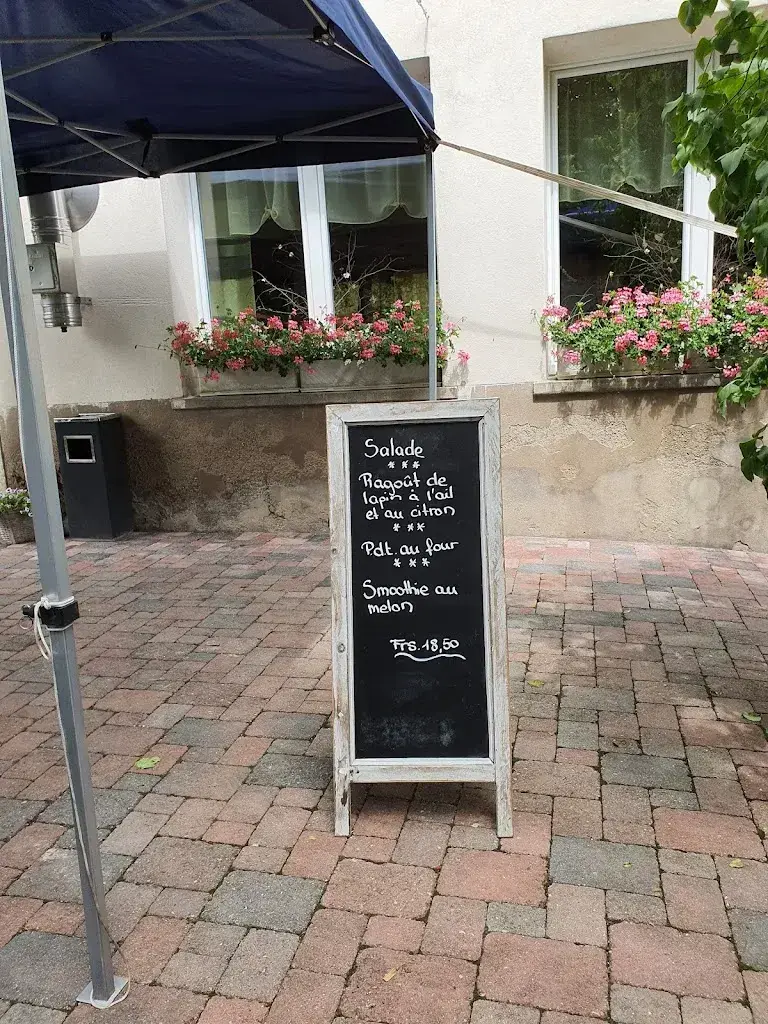 Salade
***
Ragoût de
lapin à l'ail
et au citron
***
P.d.t. au four
***
Smoothie au
melon
Frs. 18,50